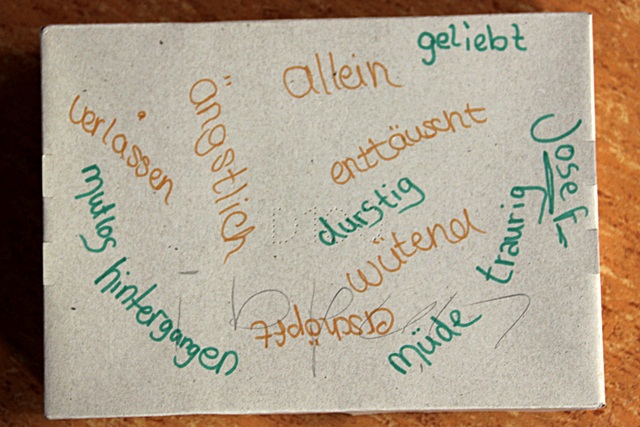 geliebt
allein
ängstlich
verlassen
enttäuscht
Josef
durstig
mutlos
traurig
wütend
hintergangen
erschöpft
müde